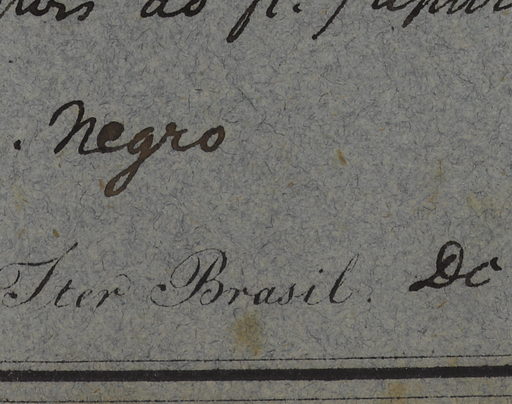 do fl.
. Negro
Iter Brasil. Dc